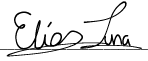 Elías Luna